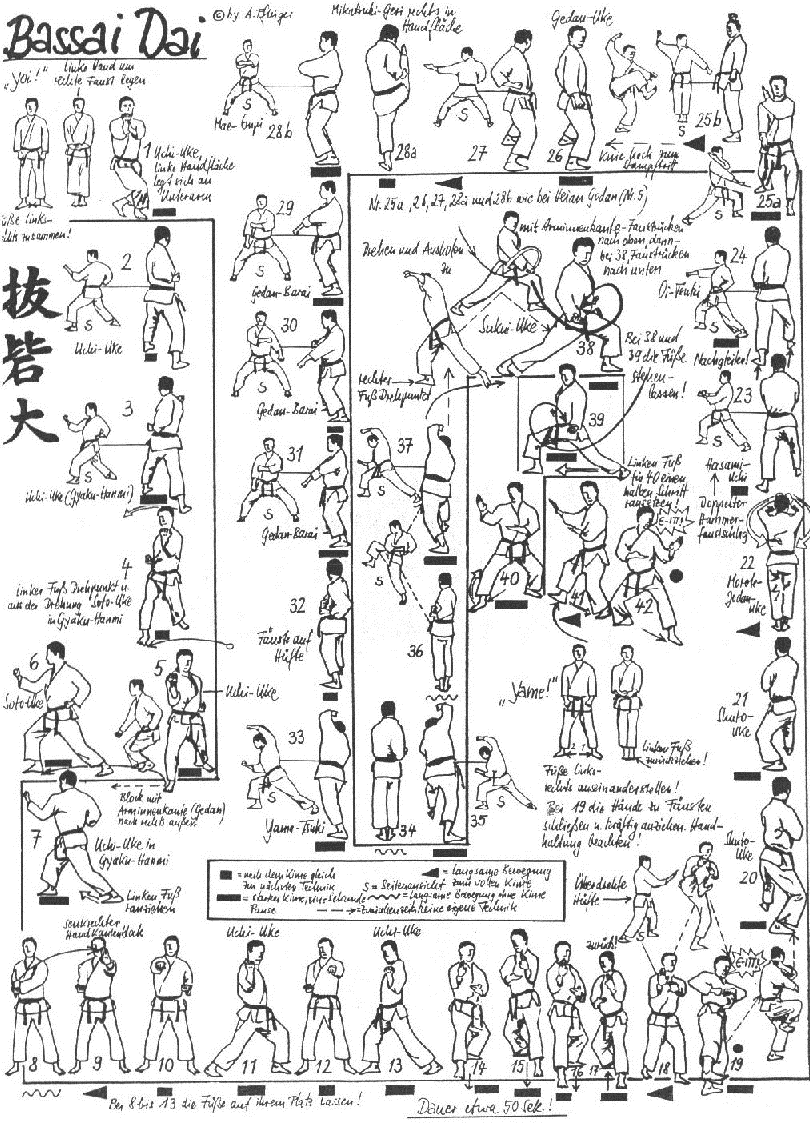 Bassai Dai
© by A. Pflüger
„Yoi!"
linke Hand um
rechte Faust legen
Füße links-
rechts zusammen!
1
Uchi-Uke,
linke Handfläche
legt sich an
Unterarm
抜
砦
大
2
S
Uchi-Uke
3
S
Uchi-Uke (Gyaku-Hanmi)
4
Linker Fuß Drehpunkt u.
aus der Drehung Soto-Uke
in Gyaku-Hanmi
5
Uchi-Uke
6
Soto-Uke
Block mit
Arminnenkante (Gedan)
nach rechts außen
7
Uchi-Uke in
Gyaku-Hanmi
Linken Fuß
ranziehen
senkrechter
Handkantenblock
8
9
10
Uchi-Uke
11
12
Uchi-Uke
13
14
15
16
17
zurück!
18
19
Bei 8 bis 13 die Füße auf ihrem Platz lassen!
Dauer etwa 50 Sek.!
Überdrehte
Hüfte
S
Shuto-
Uke
20
21
Shuto-
Uke
22
Morote-
Gedan-
Uke
Doppelter
Hammer-
faustschlag
Hasami-
Uchi
23
S
24
Oi-Tsuki
S
Nachgleiten!
25a
S
25b
S
Knie hoch zum
Stampftritt
Gedan-Uke
26
27
S
Mikazuki-Geri rechts in
Handfläche
28a
28b
S
Mae-Empi
29
S
Gedan-Barai
30
S
Gedan-Barai
31
S
Gedan-Barai
32
Fäuste auf
Hüfte
33
S
Yama-Tsuki
34
35
S
36
S
37
S
Nr. 25a, 26, 27, 28a und 28b wie bei Heian Godan (Nr. 5)
Drehen und Ausholen
zu
rechter
Fuß Drehpunkt
mit Arminnenkante - Faustrücken
nach oben, dann
bei 38 Faustrücken
nach unten
Sukui-Uke
38
Bei 38 und
39 die Füße
stehen-
lassen!
39
Linken Fuß
für 40 einen
halben Schritt
ransetzen!
40
41
42
„Yame!"
Linken Fuß
zurückziehen!
Füße links-
rechts auseinanderstellen!
Bei 19 die Hände zu Fäusten
schließen u. kräftig anziehen. Hand-
haltung beachten!
= nach dem Kime gleich
zur nächsten Technik
= starkes Kime, eine Sekunde
Pause
S = Seitenansicht
= langsame Bewegung
zum vollen Kime
= langsame Bewegung ohne Kime
= Zwischenschritt/keine eigene Technik